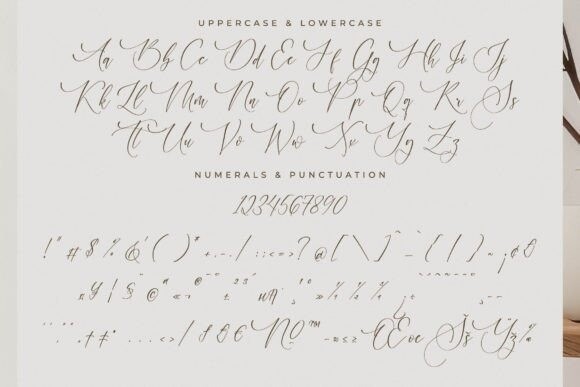 UPPERCASE & LOWERCASE
Aa Bb Cc Dd Ee Ff Gg Hh Ii Jj
Kk Ll Mm Nn Oo Pp Qq Rr Ss
Tt Uu Vv Ww Xx Yy Zz
NUMERALS & PUNCTUATION
1234567890
! " # $ % & ' ( ) * + , - . / : ; < = > ? @ [ \ ] ^ _ { | } ~ ¡ ¢
¥ ¦ § © « ¬ ® ¯ ° ± 2 3 ´ µ ¶
† ‡ • … ‹ › / № ™ − ≈ ≤ ≥ Œ œ Š š Ÿ ž ‰